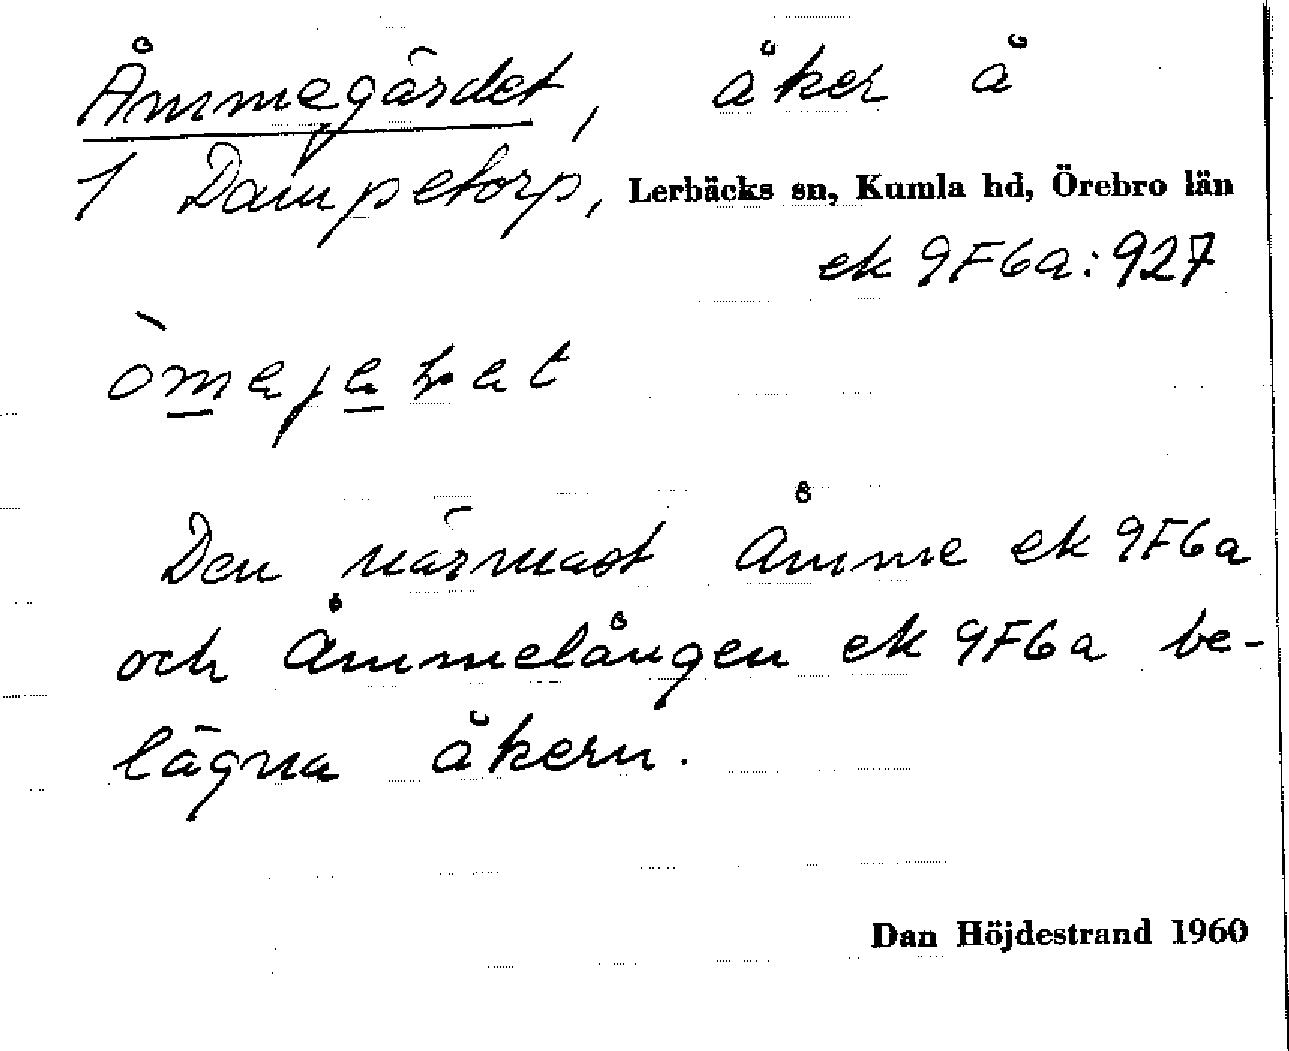 Åmmegärdet, åker å
1 Dampetorp, Lerbäcks sn, Kumla hd, Örebro län
ek 9F6a:927
Den närmast Åmme ek 9F6a
och Åmmelången ek 9F6a be-
lägna åkern.
Dan Höjdestrand 1960